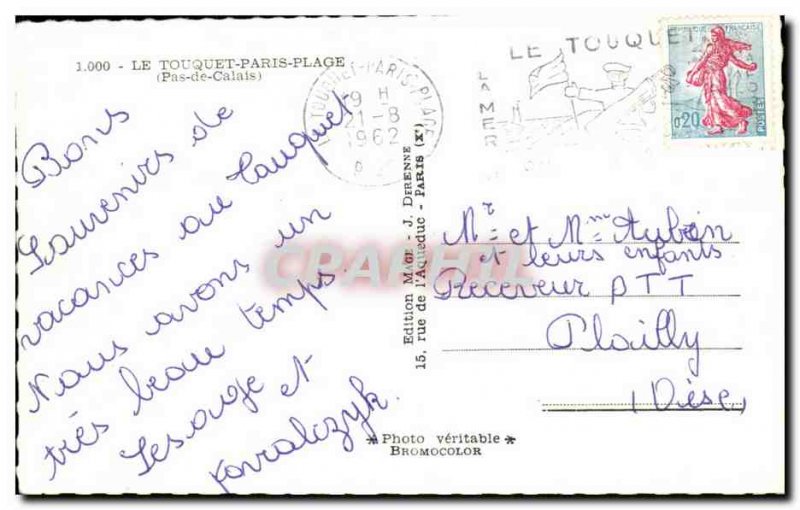 1.000 - LE TOUQUET-PARIS-PLAGE
(Pas-de-Calais)
LE TOUQUET-PARIS-PLAGE
19 H
21-8
1962
LE TOUQUET
LA MER
REPUBLIQUE FRANÇAISE
0,20
POSTES
Bons
Souvenirs de
vacances au Touquet
Nous avons un
très beau temps.
Lesage et
Kovalczyk.
Edition MAGE - J. DERENNE
15, rue de l'Aqueduc - PARIS (Xe)
CPAPHIL
Mr et Mme Aubin
et leurs enfants
Receveur PTT
Plailly
(Oise)
* Photo véritable *
BROMOCOLOR